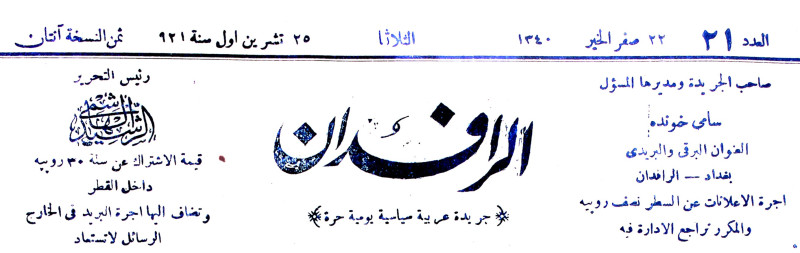 العدد ٢١ ٢٢ صفر الخير ١٣٤٠ الثلاثا ٢٥ تشرين اول سنة ٩٢١ ثمن النسخة آنتان
صاحب الجريدة ومديرها المسؤل
سامي خونده
العنوان البرقي والبريدي
بغداد — الرافدان
اجرة الاعلانات عن السطر نصف روبيه
والمكرر تراجع الادارة فيه
الرافدان
جريدة عربية سياسية يومية حرة
رئيس التحرير
الرشيد الهاشمي
قيمة الاشتراك عن سنة ٣٠ روبيه
داخل القطر
وتضاف اليها اجرة البريد في الخارج
الرسائل لاتستعاد